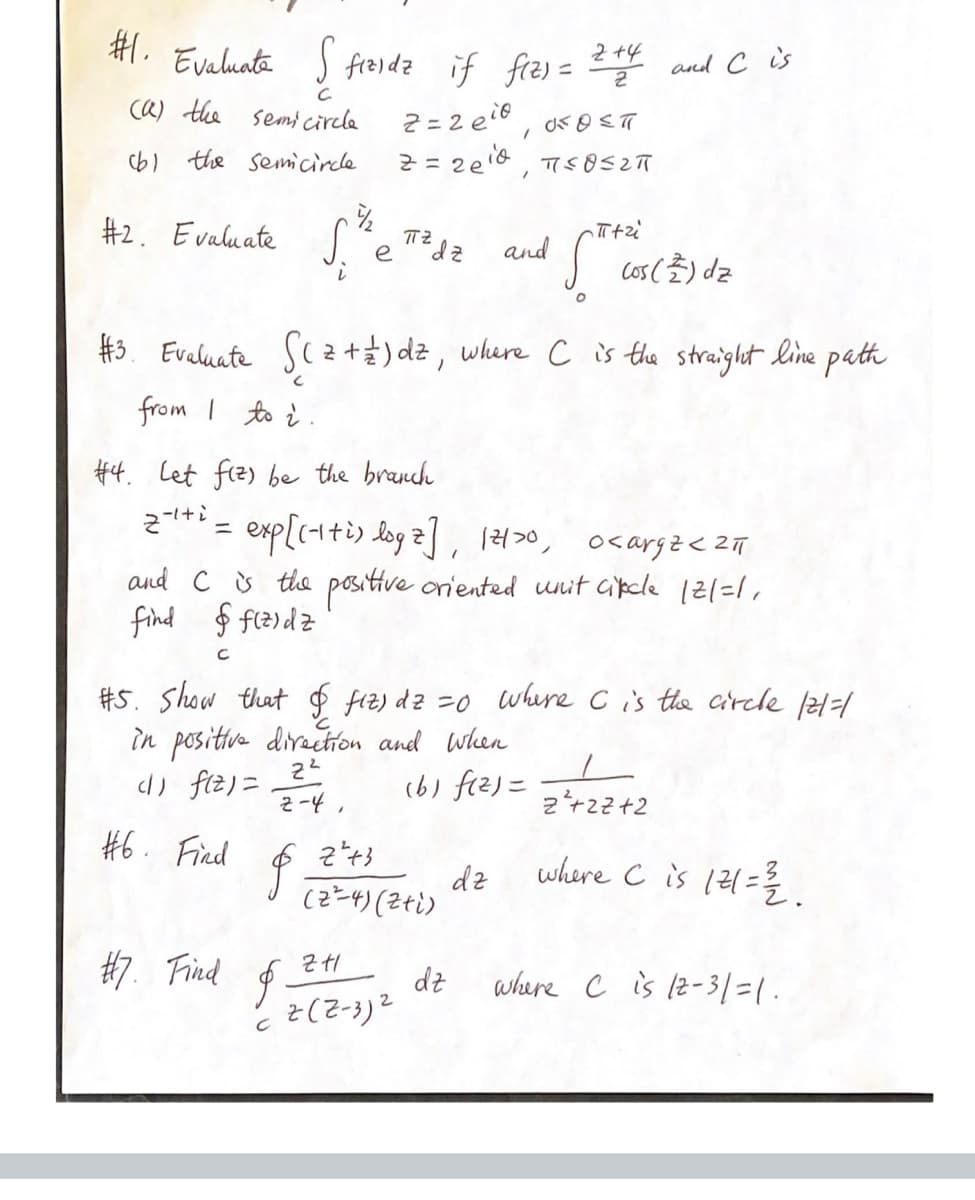 #1. Evaluate ∫_C f(z)dz if f(z) = (z+4)/z and C is
(a) the semicircle z = 2e^{iθ}, 0≤θ≤π
(b) the semicircle z = 2e^{iθ}, π≤θ≤2π
#2. Evaluate ∫_i^{i/2} e^{πz} dz and ∫_0^{π+2i} cos(z/2) dz
#3. Evaluate ∫_C (z + 1/z) dz, where C is the straight line path
from 1 to i.
#4. Let f(z) be the branch
z^{-1+i} = exp[(-1+i) log z], |z|>0, 0<arg z<2π
and C is the positive oriented unit circle |z|=1,
find ∮_C f(z)dz
#5. Show that ∮_C f(z) dz = 0 where C is the circle |z|=1
in positive direction and when
(1) f(z) = z²/(z-4), (b) f(z) = 1/(z²+2z+2)
#6. Find ∮ (z²+3)/((z²-4)(z+i)) dz where C is |z| = 3/2.
#7. Find ∮_C (z+1)/(z(z-3)²) dz where C is |z-3|=1.